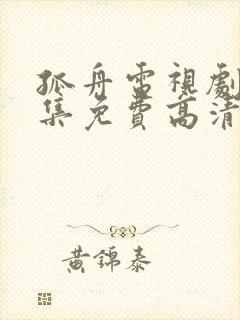 孤舟電視劇
集免費高清
黃錦泰